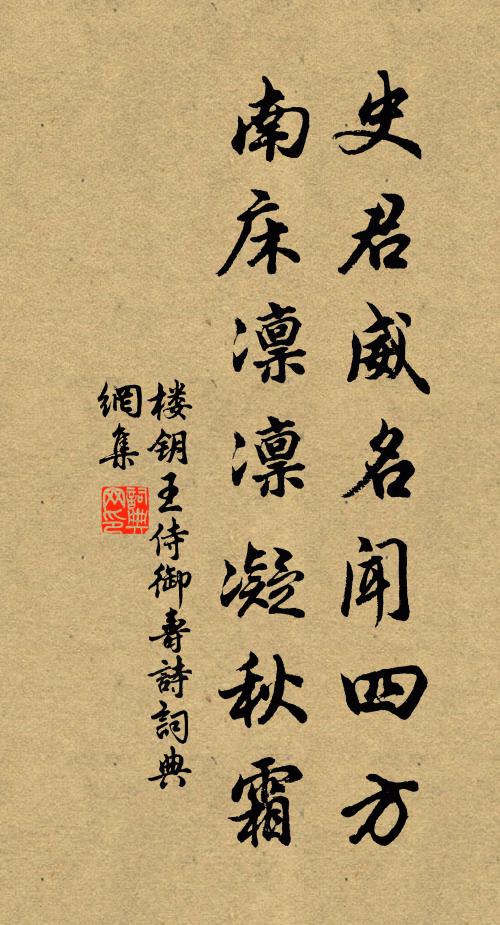 史君威名闻四方
南床凛凛凝秋霜
楼钥王侍御寿詩詞典
網集
詞典网印